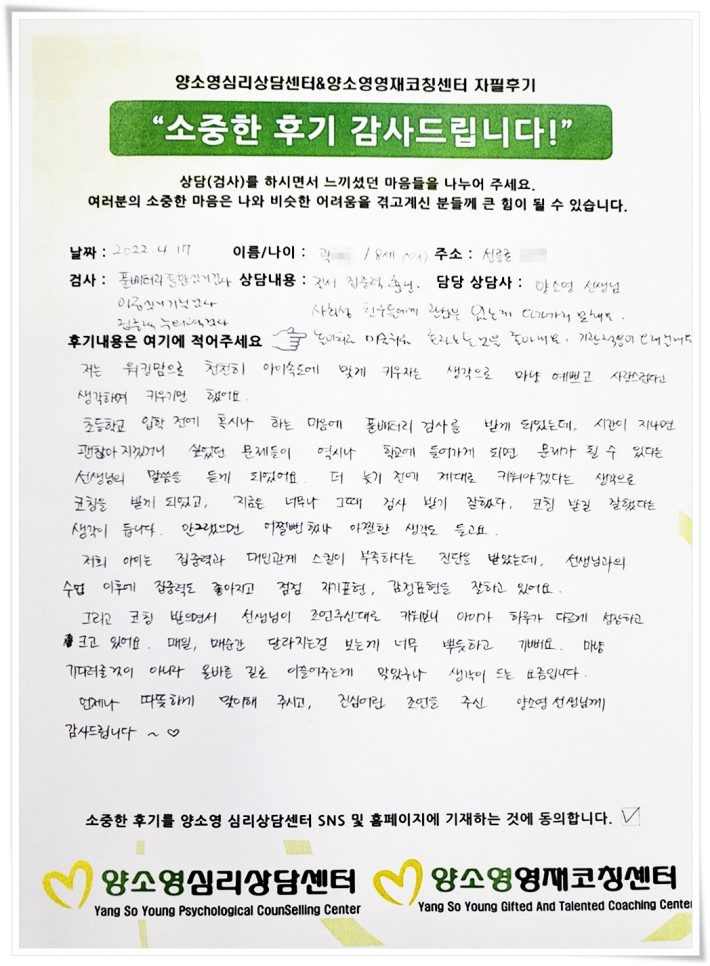 양소영심리상담센터&양소영영재코칭센터 자필후기
“소중한 후기 감사드립니다!”
상담(검사)를 하시면서 느끼셨던 마음들을 나누어 주세요.
여러분의 소중한 마음은 나와 비슷한 어려움을 겪고계신 분들께 큰 힘이 될 수 있습니다.
날짜 : 2022.4.17 이름/나이 : 곽 / 8세 (여) 주소 : 선릉로
검사 : 풀배터리 종합심리검사 상담내용 : 정서, 집중력, 담당 상담사 : 양소영 선생님
사회성 친구들에게 관심은 있는데
후기내용은 여기에 적어주세요
저는 워킹맘으로 천천히 아이속도에 맞게 키우자는 생각으로 마냥 예쁘고 사랑스럽다고
생각하며 키우기만 했어요.
초등학교 입학 전에 혹시나 하는 마음에 풀배터리 검사를 받게 되었는데, 시간이 지나면
괜찮아지겠거니 싶었던 문제들이 역시나 학교에 들어가게 되면 문제가 될 수 있다는
선생님의 말씀을 듣게 되었어요. 더 늦기 전에 제대로 키워야겠다는 생각으로
코칭을 받게 되었고, 지금은 너무나 그때 검사 받기 잘했다, 코칭 받길 잘했다는
생각이 듭니다. 안그랬으면 어쩔뻔 했나 아찔한 생각도 들고요.
저희 아이는 집중력과 대인관계 스킬이 부족하다는 진단을 받았는데, 선생님과의
수업 이후에 집중력도 좋아지고 점점 자기표현, 감정표현을 잘하고 있어요.
그리고 코칭 받으면서 선생님이 조언주신대로 키워보니 아이가 하루가 다르게 성장하고
크고 있어요. 매일, 매순간 달라지는걸 보는게 너무 뿌듯하고 기뻐요. 마냥
기다려줄것이 아니라 올바른 길로 이끌어주는게 맞았구나 생각이 드는 요즘입니다.
언제나 따뜻하게 맞이해 주시고, 진심어린 조언을 주신 양소영 선생님께
감사드립니다 ~ ♡
소중한 후기를 양소영 심리상담센터 SNS 및 홈페이지에 기재하는 것에 동의합니다. ☑
양소영심리상담센터
Yang So Young Psychological CounSelling Center
양소영영재코칭센터
Yang So Young Gifted And Talented Coaching Center